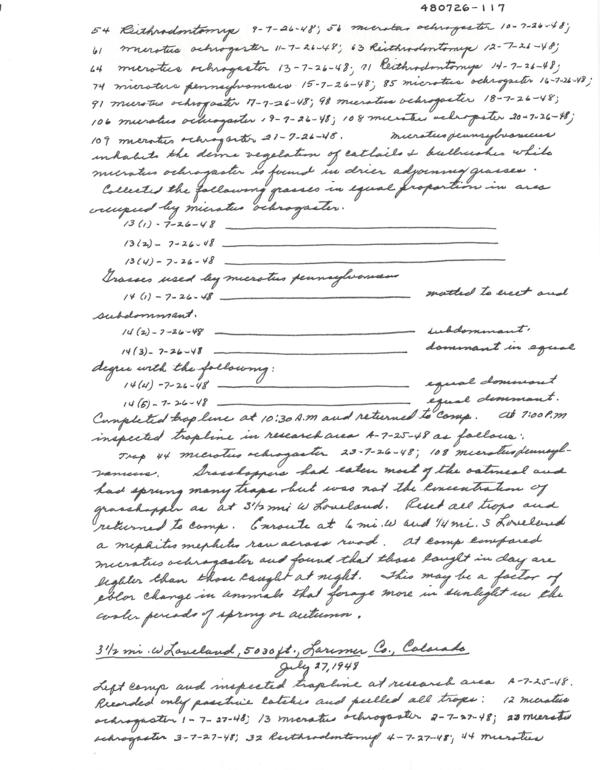 480726-117
54 Reithrodontomys 9-7-26-48; 56 microtus ochrogaster 10-7-26-48;
61 microtus ochrogaster 11-7-26-48; 63 Reithrodontomys 12-7-26-48;
64 microtus ochrogaster 13-7-26-48; 71 Reithrodontomys 14-7-26-48;
74 microtus pennsylvanicus 15-7-26-48; 85 microtus ochrogaster 16-7-26-48;
91 microtus ochrogaster 17-7-26-48; 98 microtus ochrogaster 18-7-26-48;
106 microtus ochrogaster 19-7-26-48; 108 microtus ochrogaster 20-7-26-48;
109 microtus ochrogaster 21-7-26-48. Microtus pennsylvanicus
inhabits the dense vegetation of cattails & bullrushes while
microtus ochrogaster is found in drier adjoining grasses.
Collected the following grasses in equal proportion in area
occupied by microtus ochrogaster.
13(1)-7-26-48
13(2)-7-26-48
13(4)-7-26-48
Grasses used by microtus pennsylvanicus
14(1)-7-26-48 matted to erect and
subdominant.
14(2)-7-26-48 subdominant.
14(3)-7-26-48 dominant in equal
degree with the following:
14(4)-7-26-48 equal dominant
14(5)-7-26-48 equal dominant.
Completed trap line at 10:30 A.M and returned to camp. At 7:00 P.M
inspected trapline in research area A-7-25-48 as follows:
Trap 44 microtus ochrogaster 23-7-26-48; 108 microtus pennsyl-
vanicus. Grasshoppers had eaten most of the oatmeal and
had sprung many traps but was not the concentration of
grasshopper as at 3½ mi W Loveland. Reset all traps and
returned to camp. Enroute at 6 mi. W and ¼ mi. S Loveland
a mephitis mephitis ran across road. At camp compared
microtus ochrogaster and found that those caught in day are
lighter than those caught at night. This may be a factor of
color change in animals that forage more in sunlight in the
cooler periods of spring or autumn.
3½ mi. W Loveland, 5030 ft., Larimer Co., Colorado
July 27, 1948
Left camp and inspected trapline at research area A-7-25-48.
Recorded only positive catches and pulled all traps: 12 microtus
ochrogaster 1-7-27-48; 13 microtus ochrogaster 2-7-27-48; 23 microtus
ochrogaster 3-7-27-48; 32 Reithrodontomys 4-7-27-48; 44 microtus